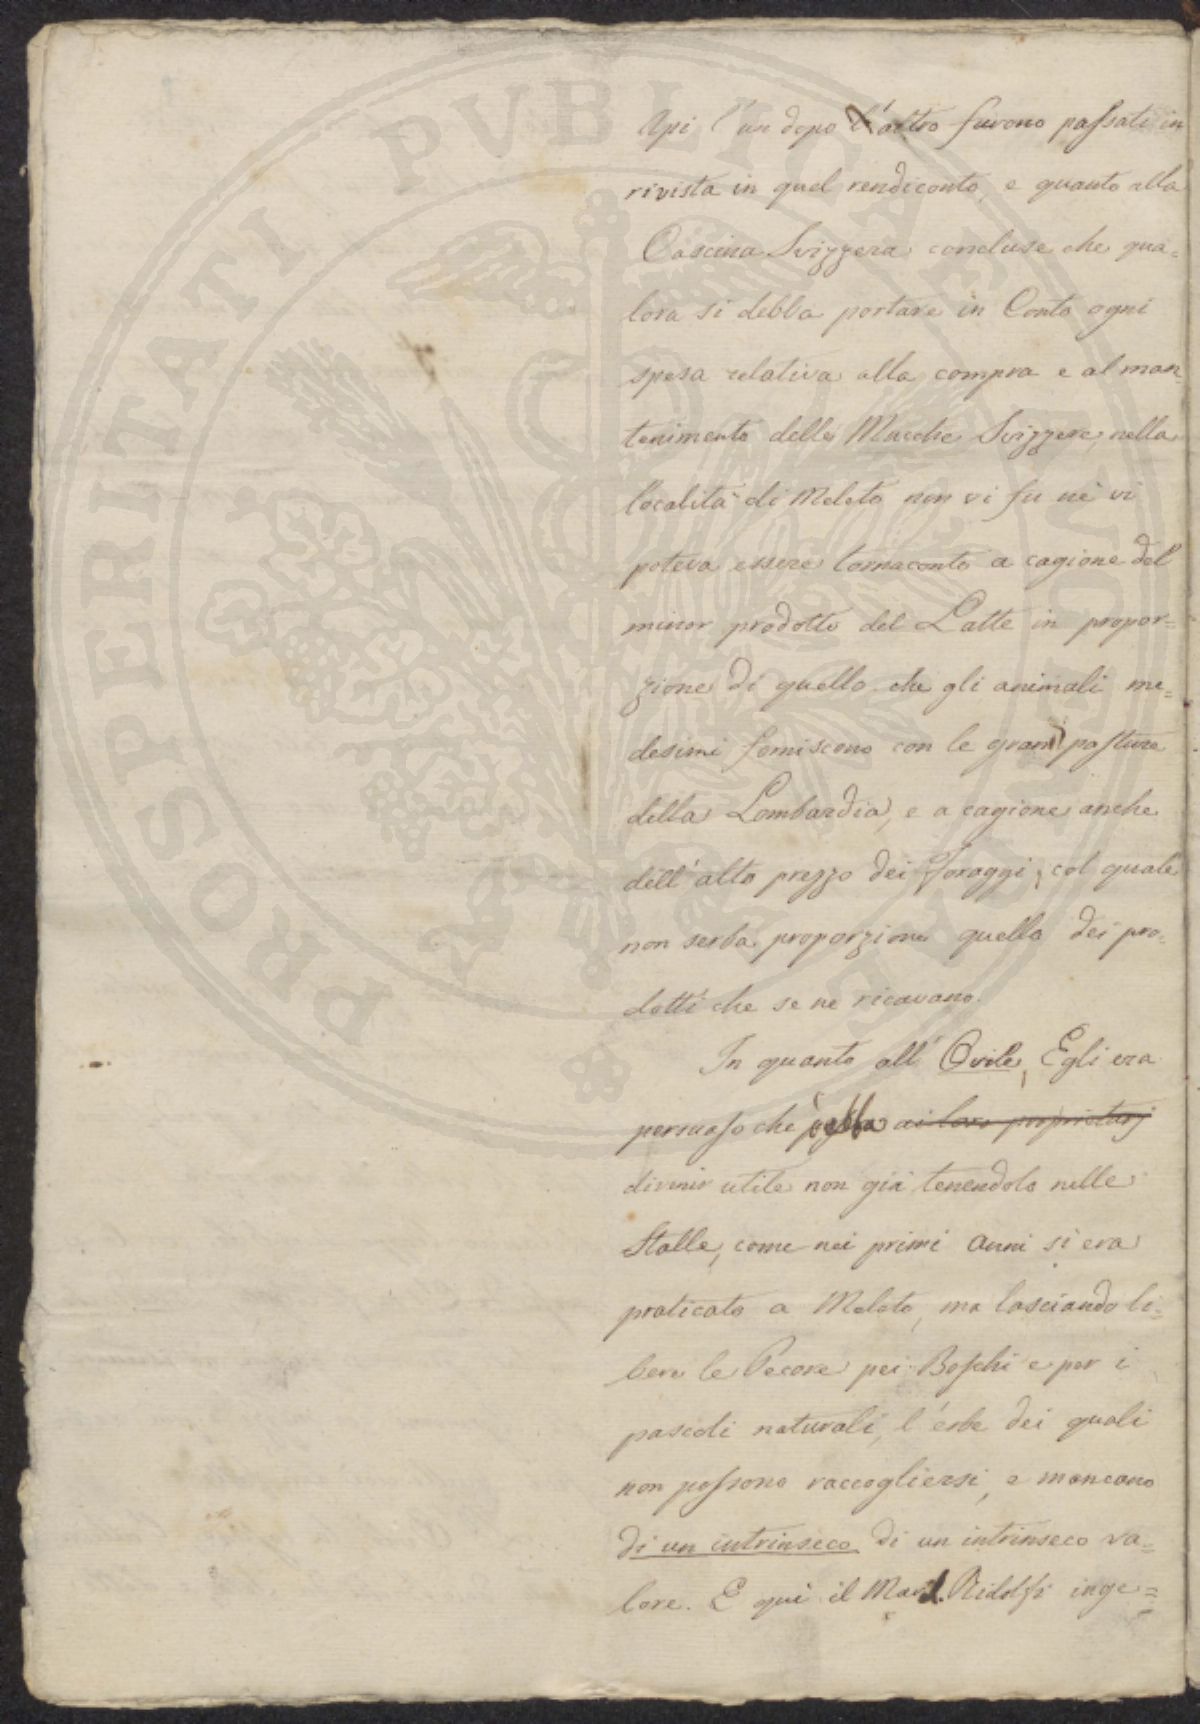 Api l'un dopo l'altro furono passati in
rivista in quel rendiconto, e quanto alla
Cascina Svizzera concluse che qua=
lora si debba portare in Conto ogni
spesa relativa alla compra e al man=
tenimento delle Mucche Svizzere, nella
località di Meleto non vi fu nè vi
poteva essere tornaconto a cagione del
minor prodotto del Latte in propor=
zione di quello che gli animali me=
desimi forniscono con le grandi pasture
della Lombardia, e a cagione anche
dell'alto prezzo dei foraggi, col quale
non serba proporzione quello dei pro=
dotti che se ne ricavano.
In quanto all'Ovile, Egli era
persuaso che ai loro proprietarj
divenir utile non già tenendolo nelle
Stalle, come nei primi anni si era
praticato a Meleto, ma lasciando li=
bere le Pecore pei Boschi e per i
pascoli naturali, l'erbe dei quali
non possono raccogliersi, e mancano
di un intrinseco di un intrinseco va=
lore. E quì il March. Ridolfi inge=
PROSPERITATI PVBLICAE AVGENDAE